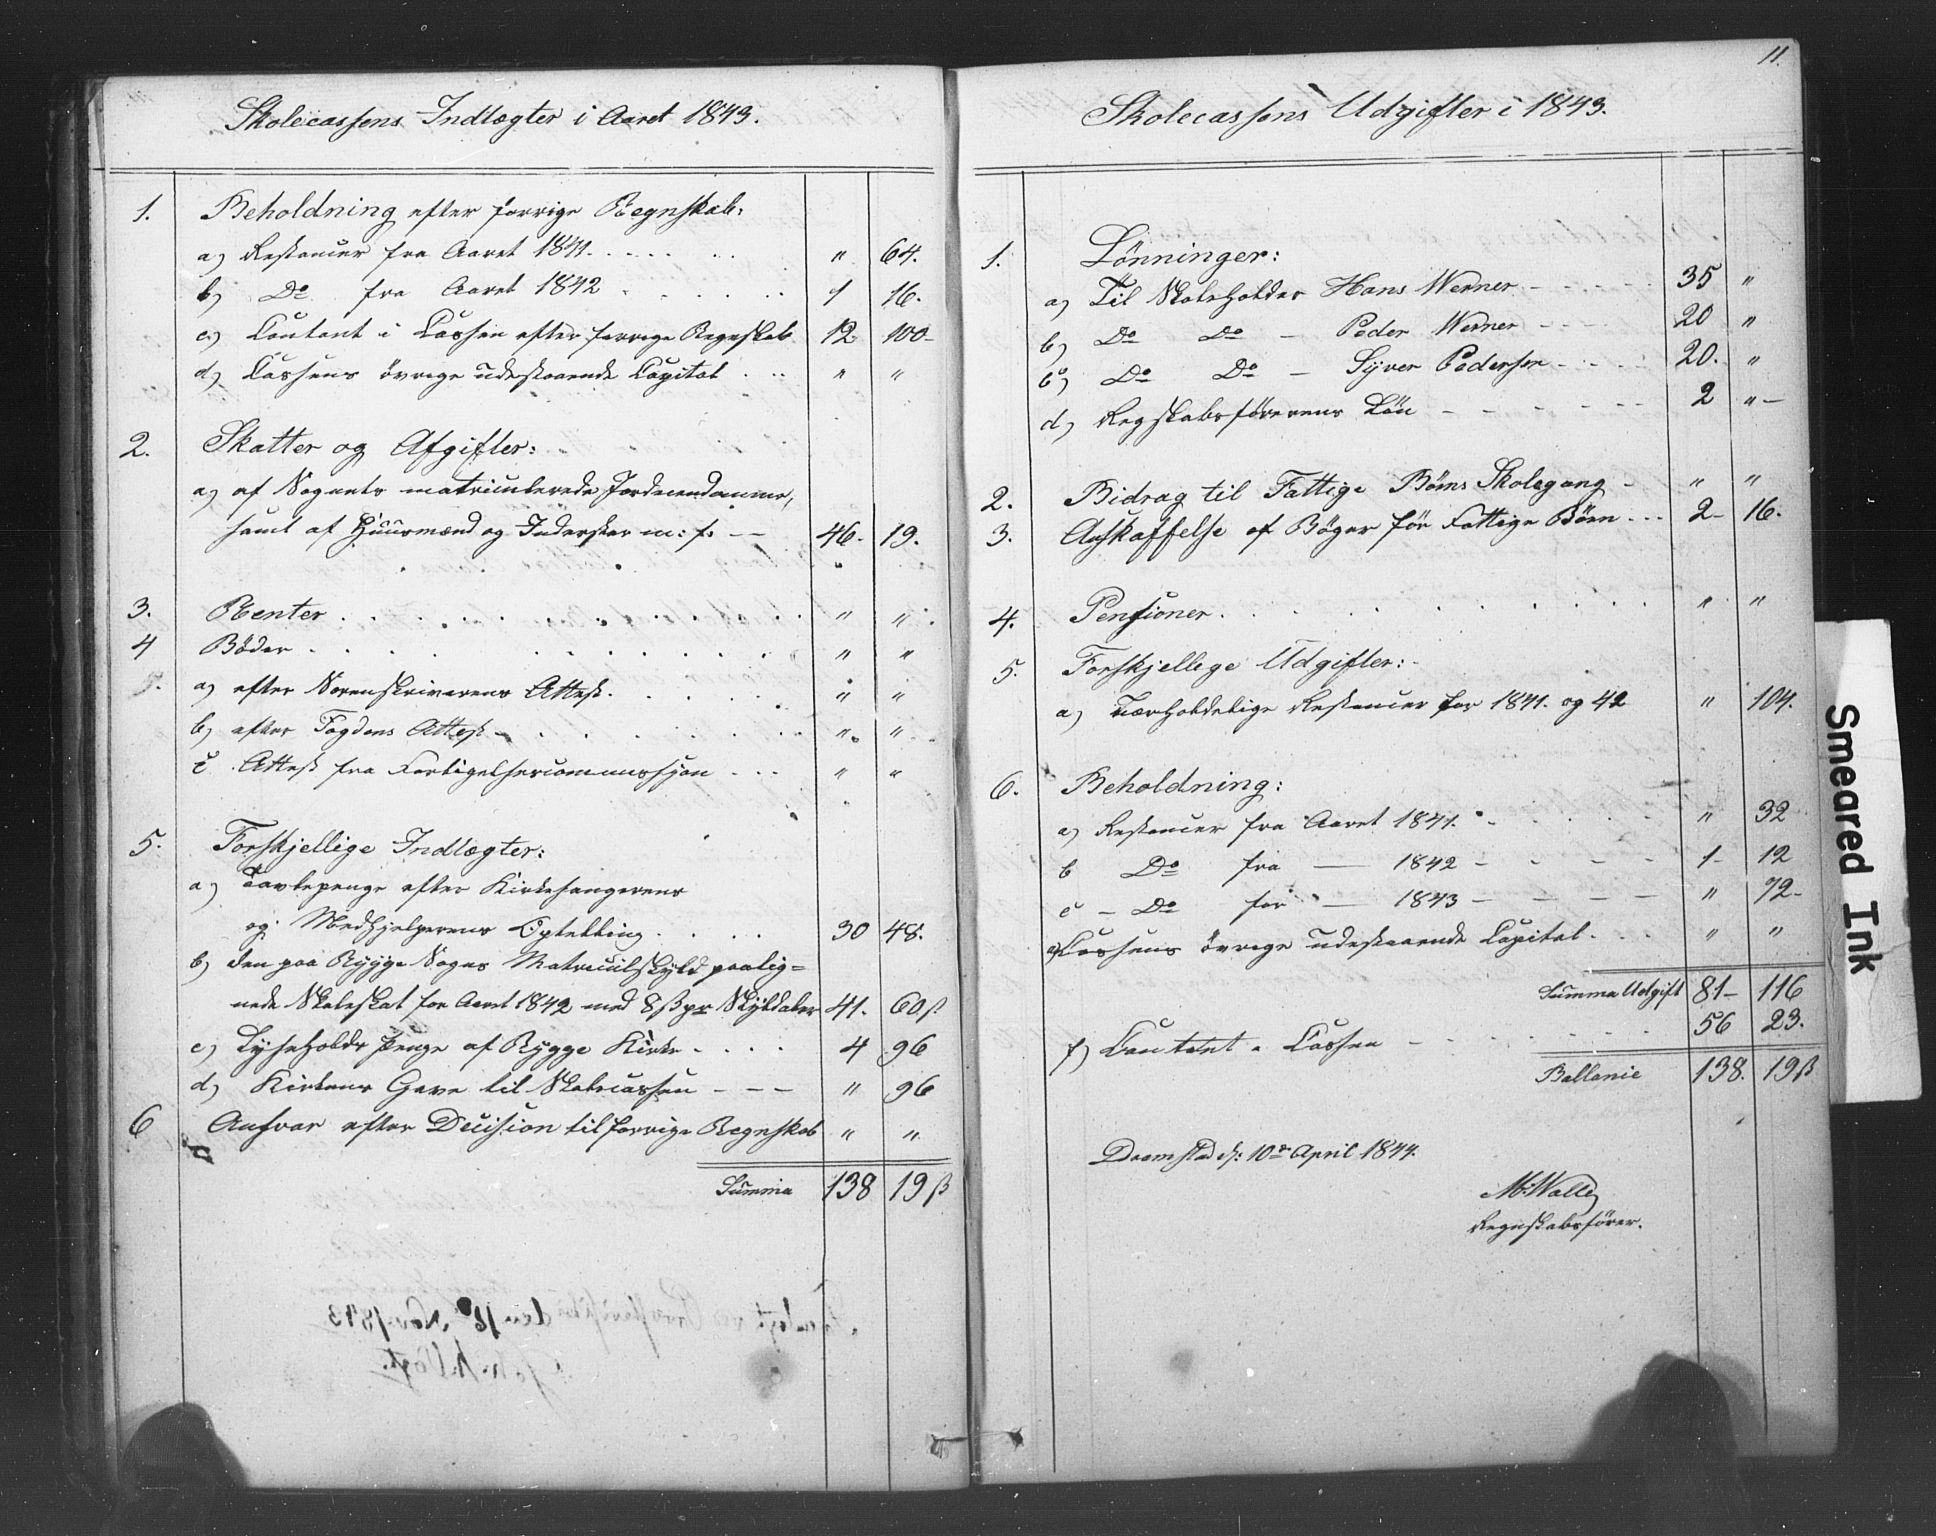 Skolecassens Indtægter i Aaret 1843.
1. Beholdning efter forrige Regnskab.
a) Restancer fra Aaret 1841. . . . . . . " 64.
b) Do fra Aaret 1842 . . . . . . 1 16.
c) Contant i Cassen efter forrige Regnskab 12 100-
d) Cassens övrige udestaaende Capital . . . " "
2. Skatter og Afgifter:
a) af Sognets matriculerede Jordeiendomme,
samt af Huusmænd og Inderster m: f: — — 46. 19.
3. Renter . . . . . . . . . . " "
4 Böder . . . . . . . . . . . " "
a) efter Sorenskriverens Attest. . . . . " "
b) efter Fogdens Attest - . . . . . . " "
c Attest fra Forligelsescommissjon . . . " "
5. Forskjellige Indtægter:
a) Tavlepenge efter Kirkesangerens
og Medhjelperens Optelling . . . . 30 48.
b) den paa Rygge Sogns Matriculskyld paalig=
nede Skoleskat for Aaret 1842 med 8 ß pr Skylddaler 41. 60 ß
c) Lyseholds Penge af Rygge Kirke - . . . . 4 96
d) Kirkens Gave til Skolecassen — — — " 96
6 Ansvar efter Decision til forrige Regnskab " "
Summa 138 19 ß
11.
Skolecassens Udgifter i 1843.
1. Lönninger:
a) Til Skoleholder Hans Werner - - - - - 35 "
b) Do Do - Peder Werner - - - 20 "
c) Do Do - Syver Pedersen - - - - 20. "
d) Regskabsförerens Lön - - - - - - 2 "-
2. Bidrag til Fattige Börns Skolegang - " "
3. Anskaffelse af Böger för Fattige Börn . . . 2- 16.
4. Pensioner . . . . . . . . . . " "
5. Forskjellege Udgifter:
a) Uerholdelige Restancer for 1841. og 42 " 104.
6. Beholdning:
a) Restancer fra Aaret 1841. . . . . . " 32
b Do fra — 1842 - - - - - 1- 12
c - Do for — 1843 - - - - - " 72-
Cassens övrige udestaaende Capital . . . " "
Summa Udgift 81- 116
f) Contant i Cassen - . . . . . . 56 23.
Ballance 138. 19 ß
d: 10de April 1844.
M. Walle
Regnskabsförer.
Smeared Ink